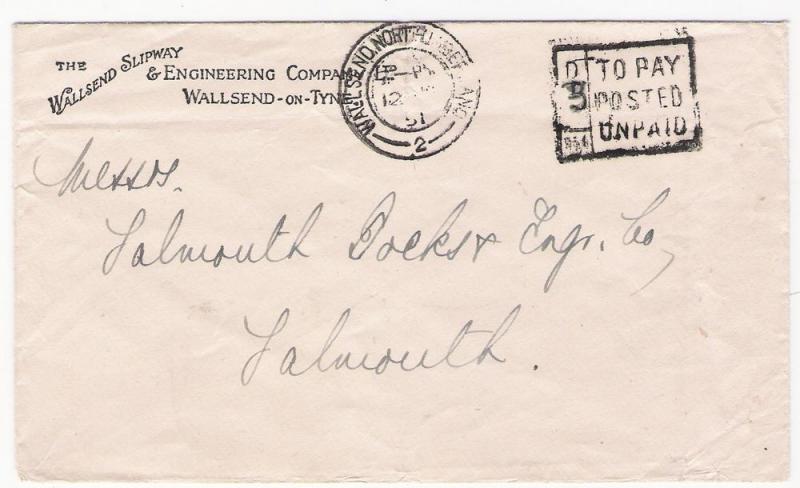 THE
WALLSEND SLIPWAY
& ENGINEERING COMPANY
WALLSEND-ON-TYNE
WALLSEND. NORTHUMBERLAND
PM
12
51
2
D
5
TO PAY
POSTED
UNPAID
Messrs.
Falmouth Docks & Engr. Co,
Falmouth.